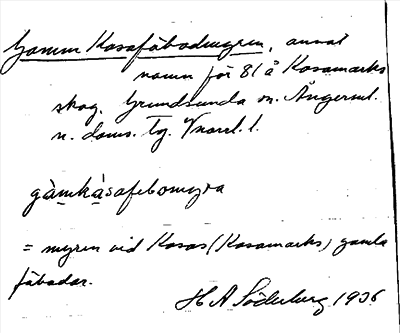 Gamm Kasafäbodmyren, annat
namn för 81 å Kasamarks
skog. Grundsunda sn. Ångerml.
n. doms. Tg.
gàmkàsafebomyra
= myren vid Kasas (Kasamarks) gamla
fäbodar.
H A Söderberg 1936